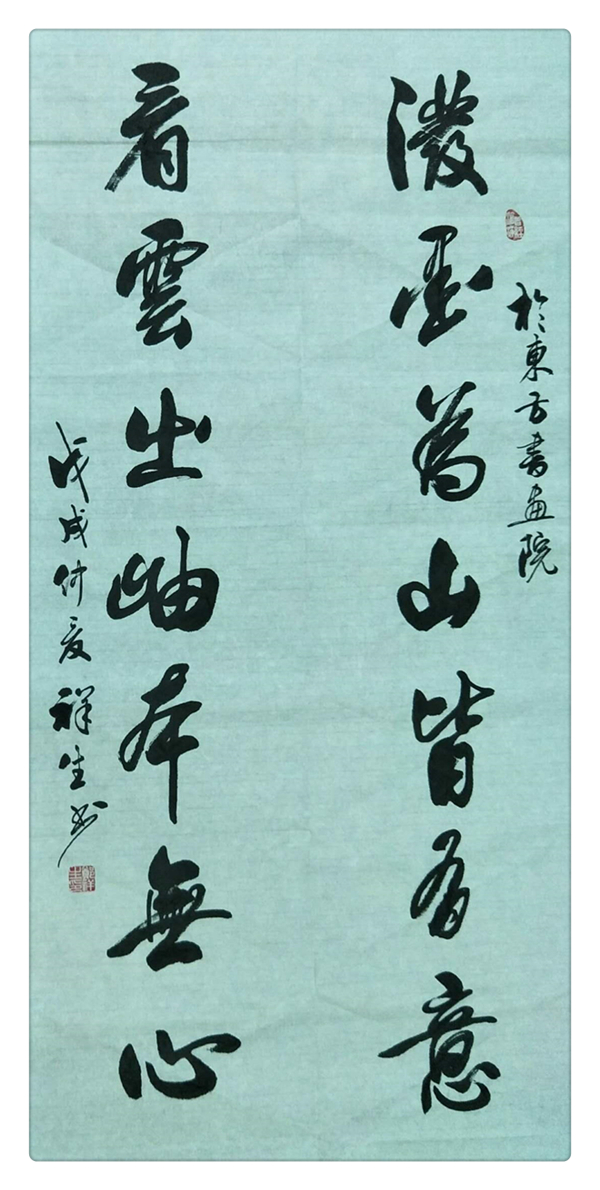 於東方書画院
潑墨為山皆有意
看雲出岫本無心
戊戌仲夏祥生书